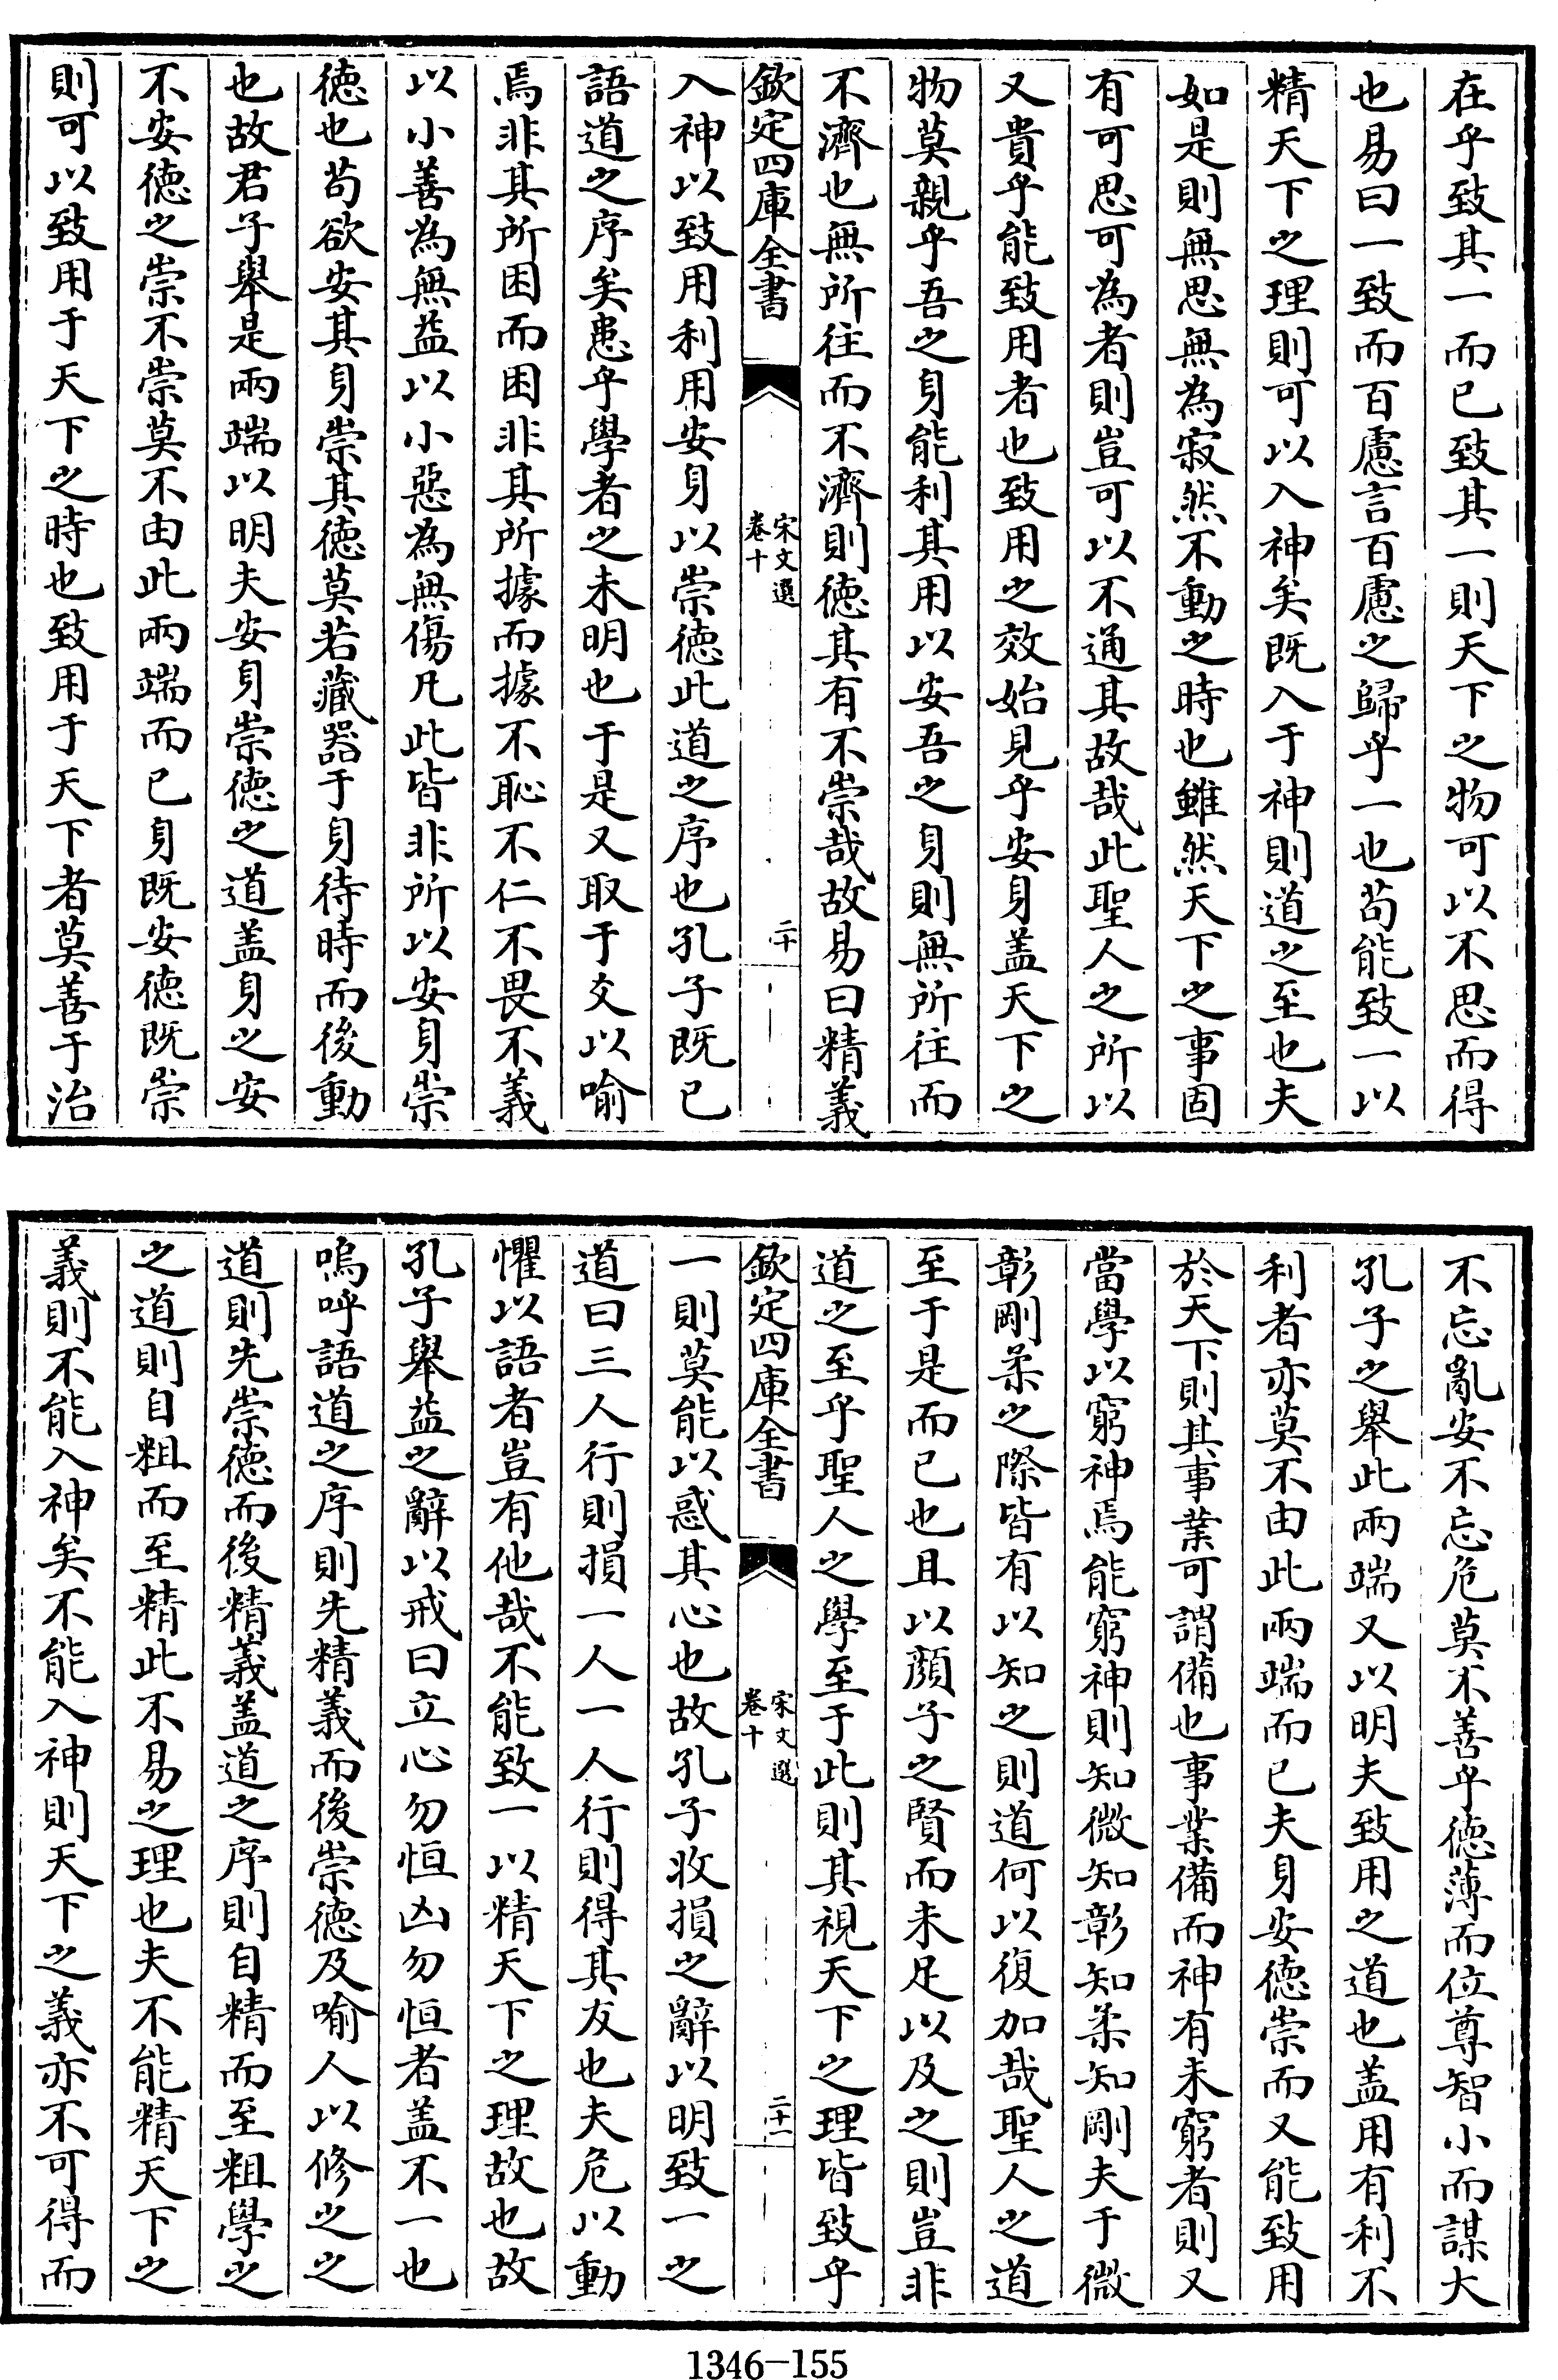 在乎致其一而已致其一則天下之物可以不思而得
也易曰一致而百慮言百慮之歸乎一也苟能致一以
精天下之理則可以入神矣既入于神則道之至也夫
如是則無思無為寂然不動之時也雖然天下之事固
有可思可為者則豈可以不通其故哉此聖人之所以
又貴乎能致用者也致用之效始見乎安身盖天下之
物莫親乎吾之身能利其用以安吾之身則無所往而
不濟也無所往而不濟則徳其有不崇哉故易曰精義
欽定四庫全書
宋文選
卷十
二十
入神以致用利用安身以崇徳此道之序也孔子既已
語道之序矣患乎學者之未明也于是又取于爻以喻
焉非其所困而困非其所據而據不恥不仁不畏不義
以小善為無益以小惡為無傷凡此皆非所以安身崇
徳也苟欲安其身崇其徳莫若藏器于身待時而後動
也故君子舉是兩端以明夫安身崇徳之道盖身之安
不安徳之崇不崇莫不由此兩端而已身既安徳既崇
則可以致用于天下之時也致用于天下者莫善于治
不忘亂安不忘危莫不善乎徳薄而位尊智小而謀大
孔子之舉此兩端又以明夫致用之道也盖用有利不
利者亦莫不由此兩端而已夫身安徳崇而又能致用
於天下則其事業可謂備也事業備而神有未窮者則又
當學以窮神焉能窮神則知微知彰知柔知剛夫于微
彰剛柔之際皆有以知之則道何以復加哉聖人之道
至于是而已也且以顔子之賢而未足以及之則豈非
道之至乎聖人之學至于此則其視天下之理皆致乎
欽定四庫全書
宋文選
卷十
二十一
一則莫能以惑其心也故孔子收損之辭以明致一之
道曰三人行則損一人一人行則得其友也夫危以動
懼以語者豈有他哉不能致一以精天下之理故也故
孔子舉益之辭以戒曰立心勿恒凶勿恒者盖不一也
嗚呼語道之序則先精義而後崇徳及喻人以修之之
道則先崇徳而後精義盖道之序則自精而至粗學之
之道則自粗而至精此不易之理也夫不能精天下之
義則不能入神矣不能入神則天下之義亦不可得而
1346—155